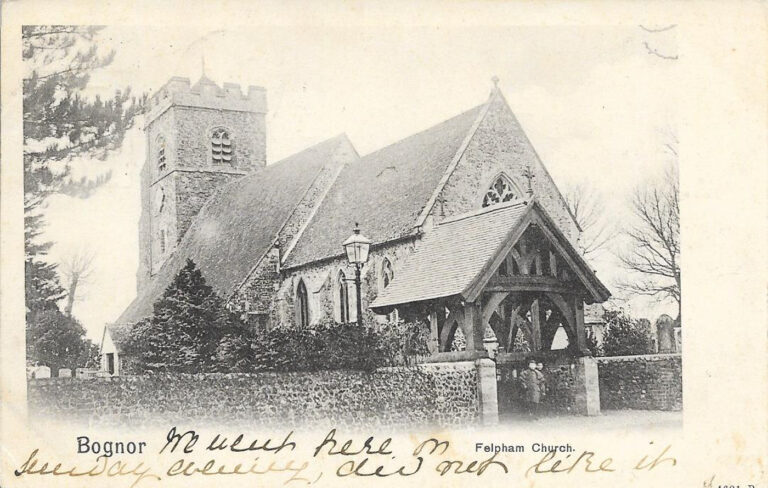 Bognor We went here on Felpham Church.
Sunday evening, did not like it